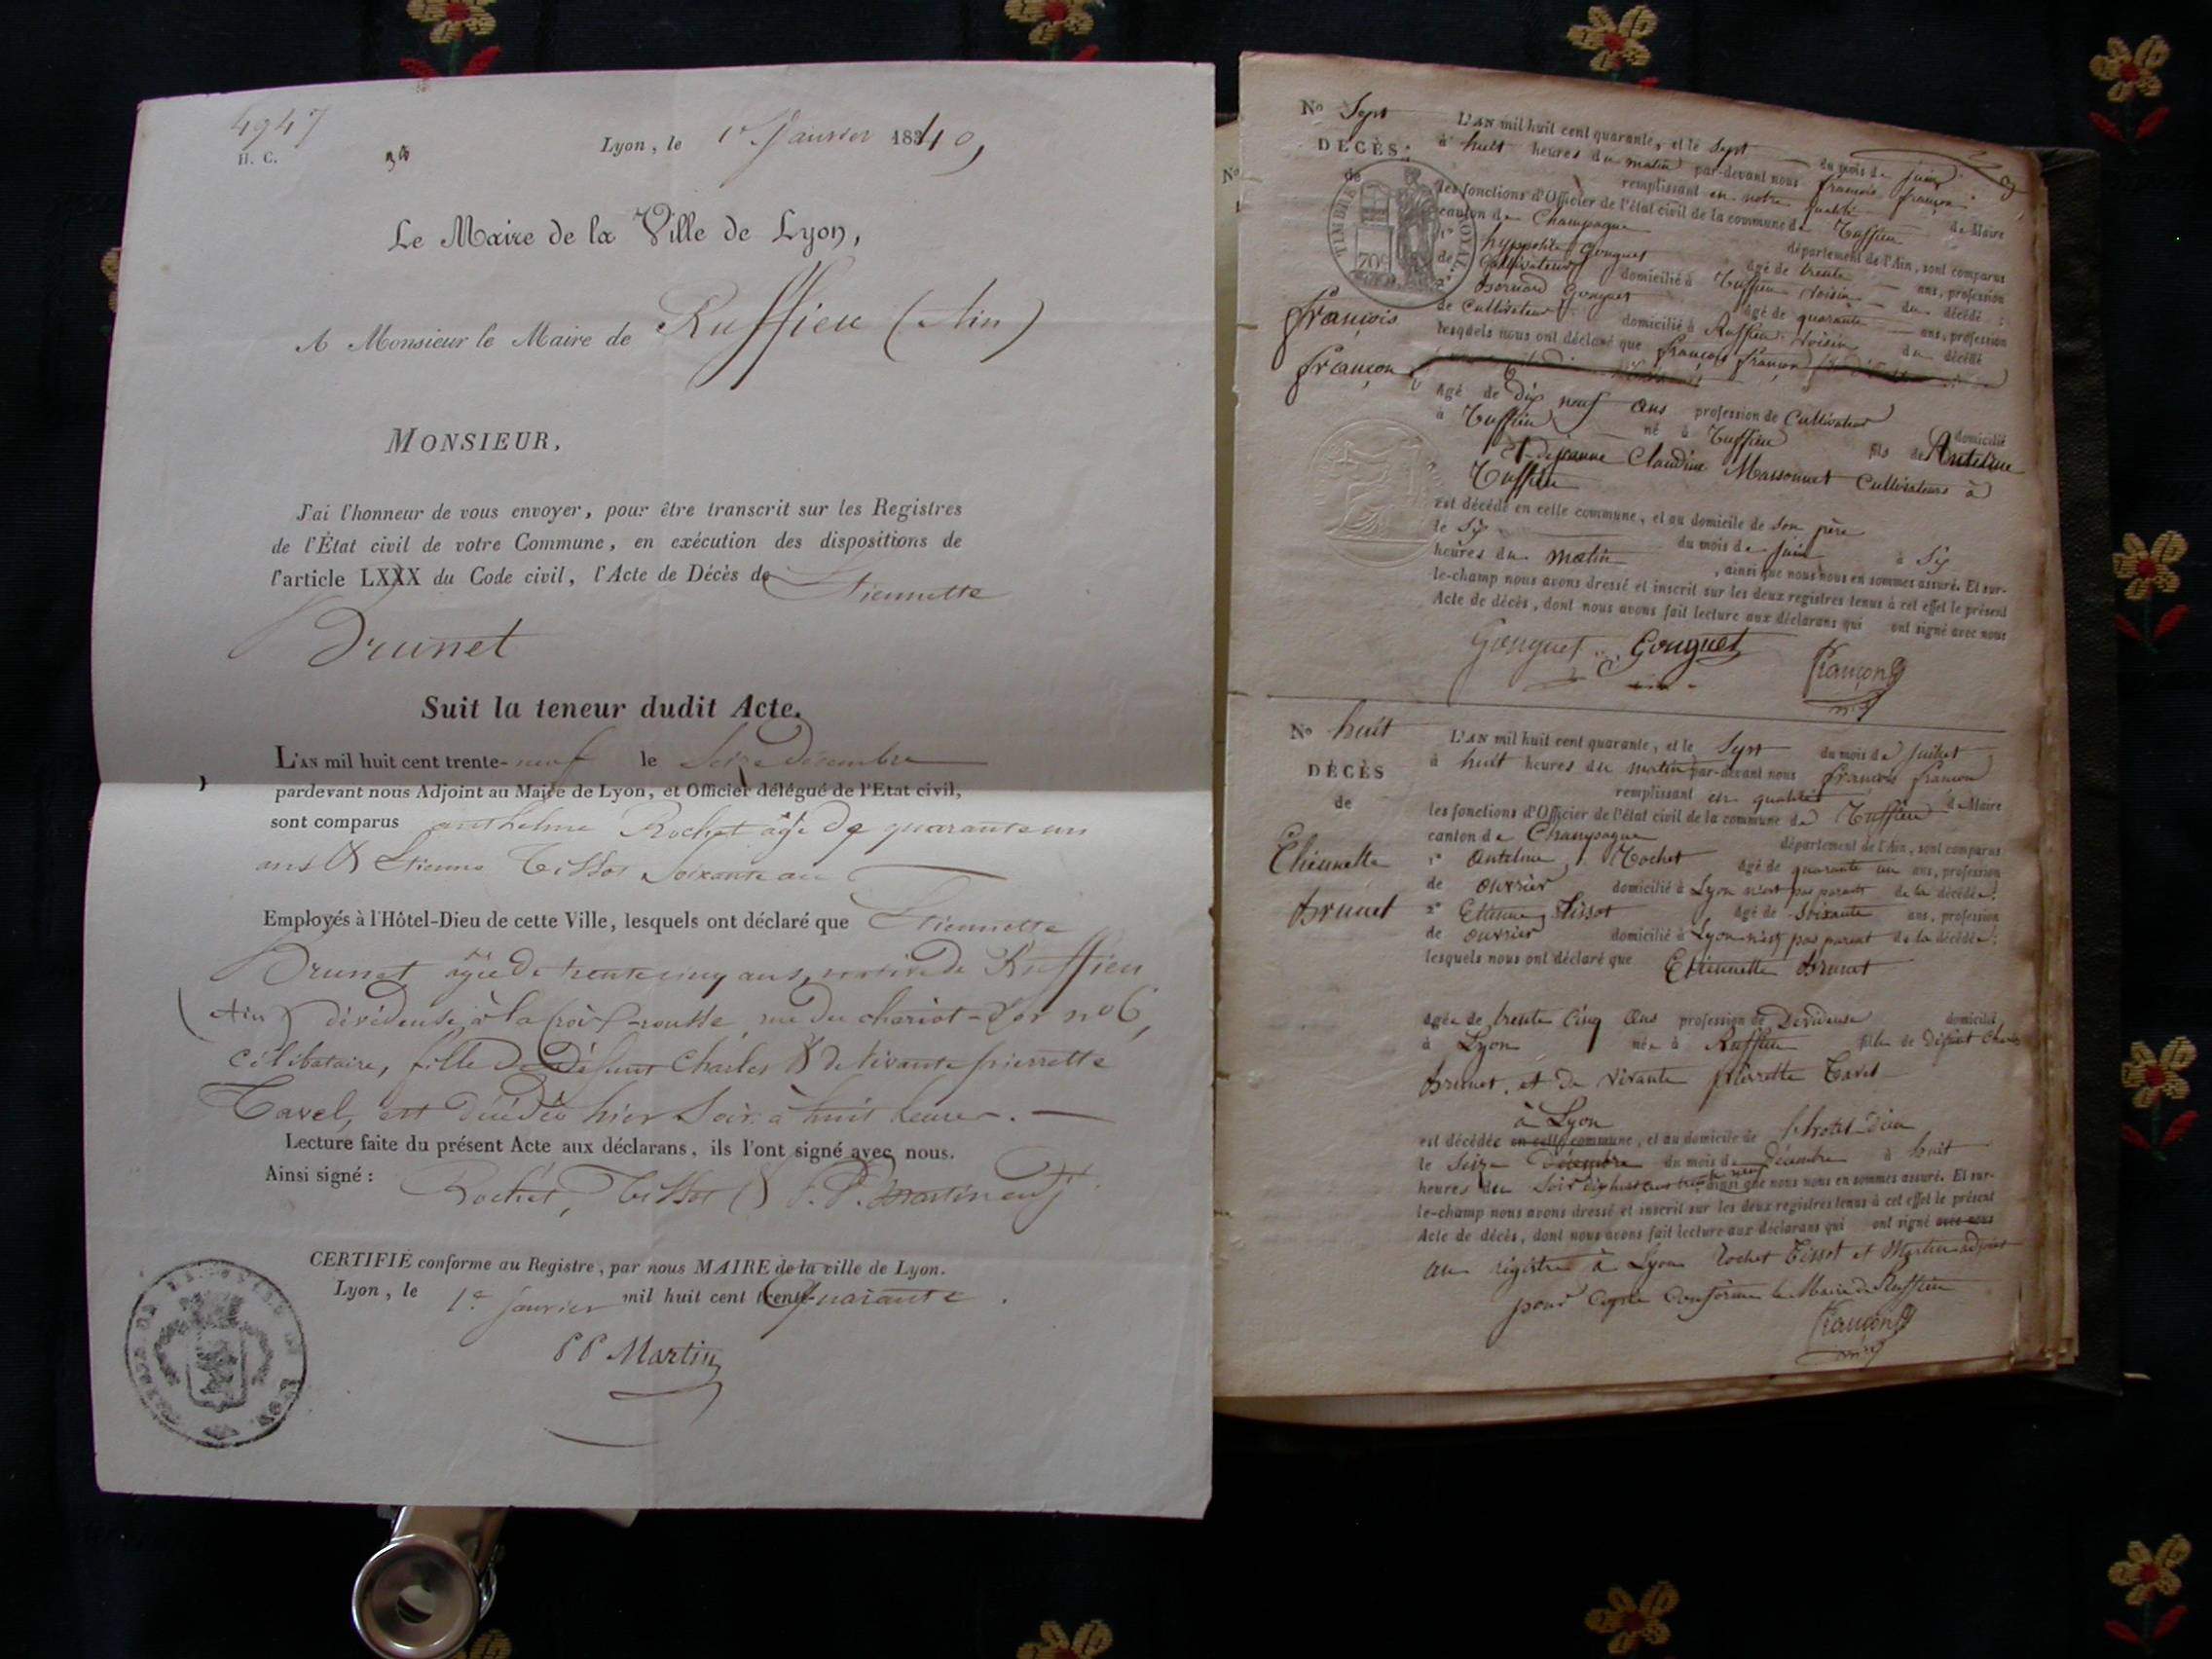 4947
H. C.
Lyon, le 1er Janvier 1840,
Le Maire de la Ville de Lyon,
A Monsieur le Maire de Ruffieu (Ain)
MONSIEUR,
J'ai l'honneur de vous envoyer, pour être transcrit sur les Registres
de l'État civil de votre Commune, en exécution des dispositions de
l'article LXXX du Code civil, l'Acte de Décès de Etiennette
Brunet
Suit la teneur dudit Acte.
L'AN mil huit cent trente-neuf le Seize Décembre
pardevant nous Adjoint au Maire de Lyon, et Officier délégué de l'Etat civil,
sont comparus anthelme Rochet âgé de quarante un
ans & Etienne Tissot Soixante an
Employés à l'Hôtel-Dieu de cette Ville, lesquels ont déclaré que Etiennette
Brunet âgée de trente cinq ans, native de Ruffieu
(Ain) dévideuse, à la Croix-rousse, rue du chariot-d'or n° 6,
Célibataire, fille de Défunt Charles & de vivante pierrette
Tavel, est décédée hier Soir à huit heures.
Lecture faite du présent Acte aux déclarans, ils l'ont signé avec nous.
Ainsi signé : Rochet, Tissot & P.P. Martin adj.
CERTIFIÉ conforme au Registre, par nous MAIRE de la ville de Lyon.
Lyon, le 1er janvier mil huit cent trente Quarante.
PP Martin
No Sept
DÉCÈS
de
François
Françon
TIMBRE ROYAL
70c
L'AN mil huit cent quarante, et le Sept du mois de juin
à huit heures du matin par-devant nous François Françon
remplissant en notre qualité de Maire
les fonctions d'Officier de l'état civil de la commune de Ruffieu
canton de Champagne département de l'Ain, sont comparus
1° hyppolite Gonguet âgé de trente ans, profession
de Cultivateur domicilié à Ruffieu voisin du décédé ;
2° Bernard Gonguet âgé de quarante ans, profession
de Cultivateur domicilié à Ruffieu voisin du décédé
lesquels nous ont déclaré que François Françon
Agé de dix neuf ans profession de Cultivateur domicilié
à Ruffieu né à Ruffieu fils de Anteline
Et de jeanne Claudine Massonnet Cultivateurs à
Ruffieu
est décédé en cette commune, et au domicile de Son père
le Six du mois de juin à Six
heures du matin, ainsi que nous nous en sommes assuré. Et sur-
le-champ nous avons dressé et inscrit sur les deux registres tenus à cet effet le présent
Acte de décès, dont nous avons fait lecture aux déclarans qui ont signé avec nous
Gonguet Gonguet Françon
No huit
DÉCÈS
de
Etiennette
Brunet
L'AN mil huit cent quarante, et le Sept du mois de juillet
à huit heures du matin par-devant nous François Françon
remplissant en qualité de Maire
les fonctions d'Officier de l'état civil de la commune de Ruffieu
canton de Champagne département de l'Ain, sont comparus
1° Anteline Rochet âgé de quarante un ans, profession
de ouvrier domicilié à Lyon n'est pas parent de la décédée ;
2° Etienne Tissot âgé de Soixante ans, profession
de ouvrier domicilié à Lyon n'est pas parent de la décédée ;
lesquels nous ont déclaré que Etiennette Brunet
Agée de trente Cinq ans profession de Devideuse domiciliée
à Lyon née à Ruffieu fille de Défunt Charles
Brunet et de vivante pierrette Tavel
à Lyon
est décédée en cette commune, et au domicile de l'hotel Dieu
le Seize Décembre du mois de Décembre à huit
heures du Soir dix huit cent trente neuf ainsi que nous nous en sommes assuré. Et sur-
le-champ nous avons dressé et inscrit sur les deux registres tenus à cet effet le présent
Acte de décès, dont nous avons fait lecture aux déclarans qui ont signé avec nous
au registre à Lyon Rochet Tissot et Martin adjoint
pour Copie Conforme le Maire de Ruffieu
Françon